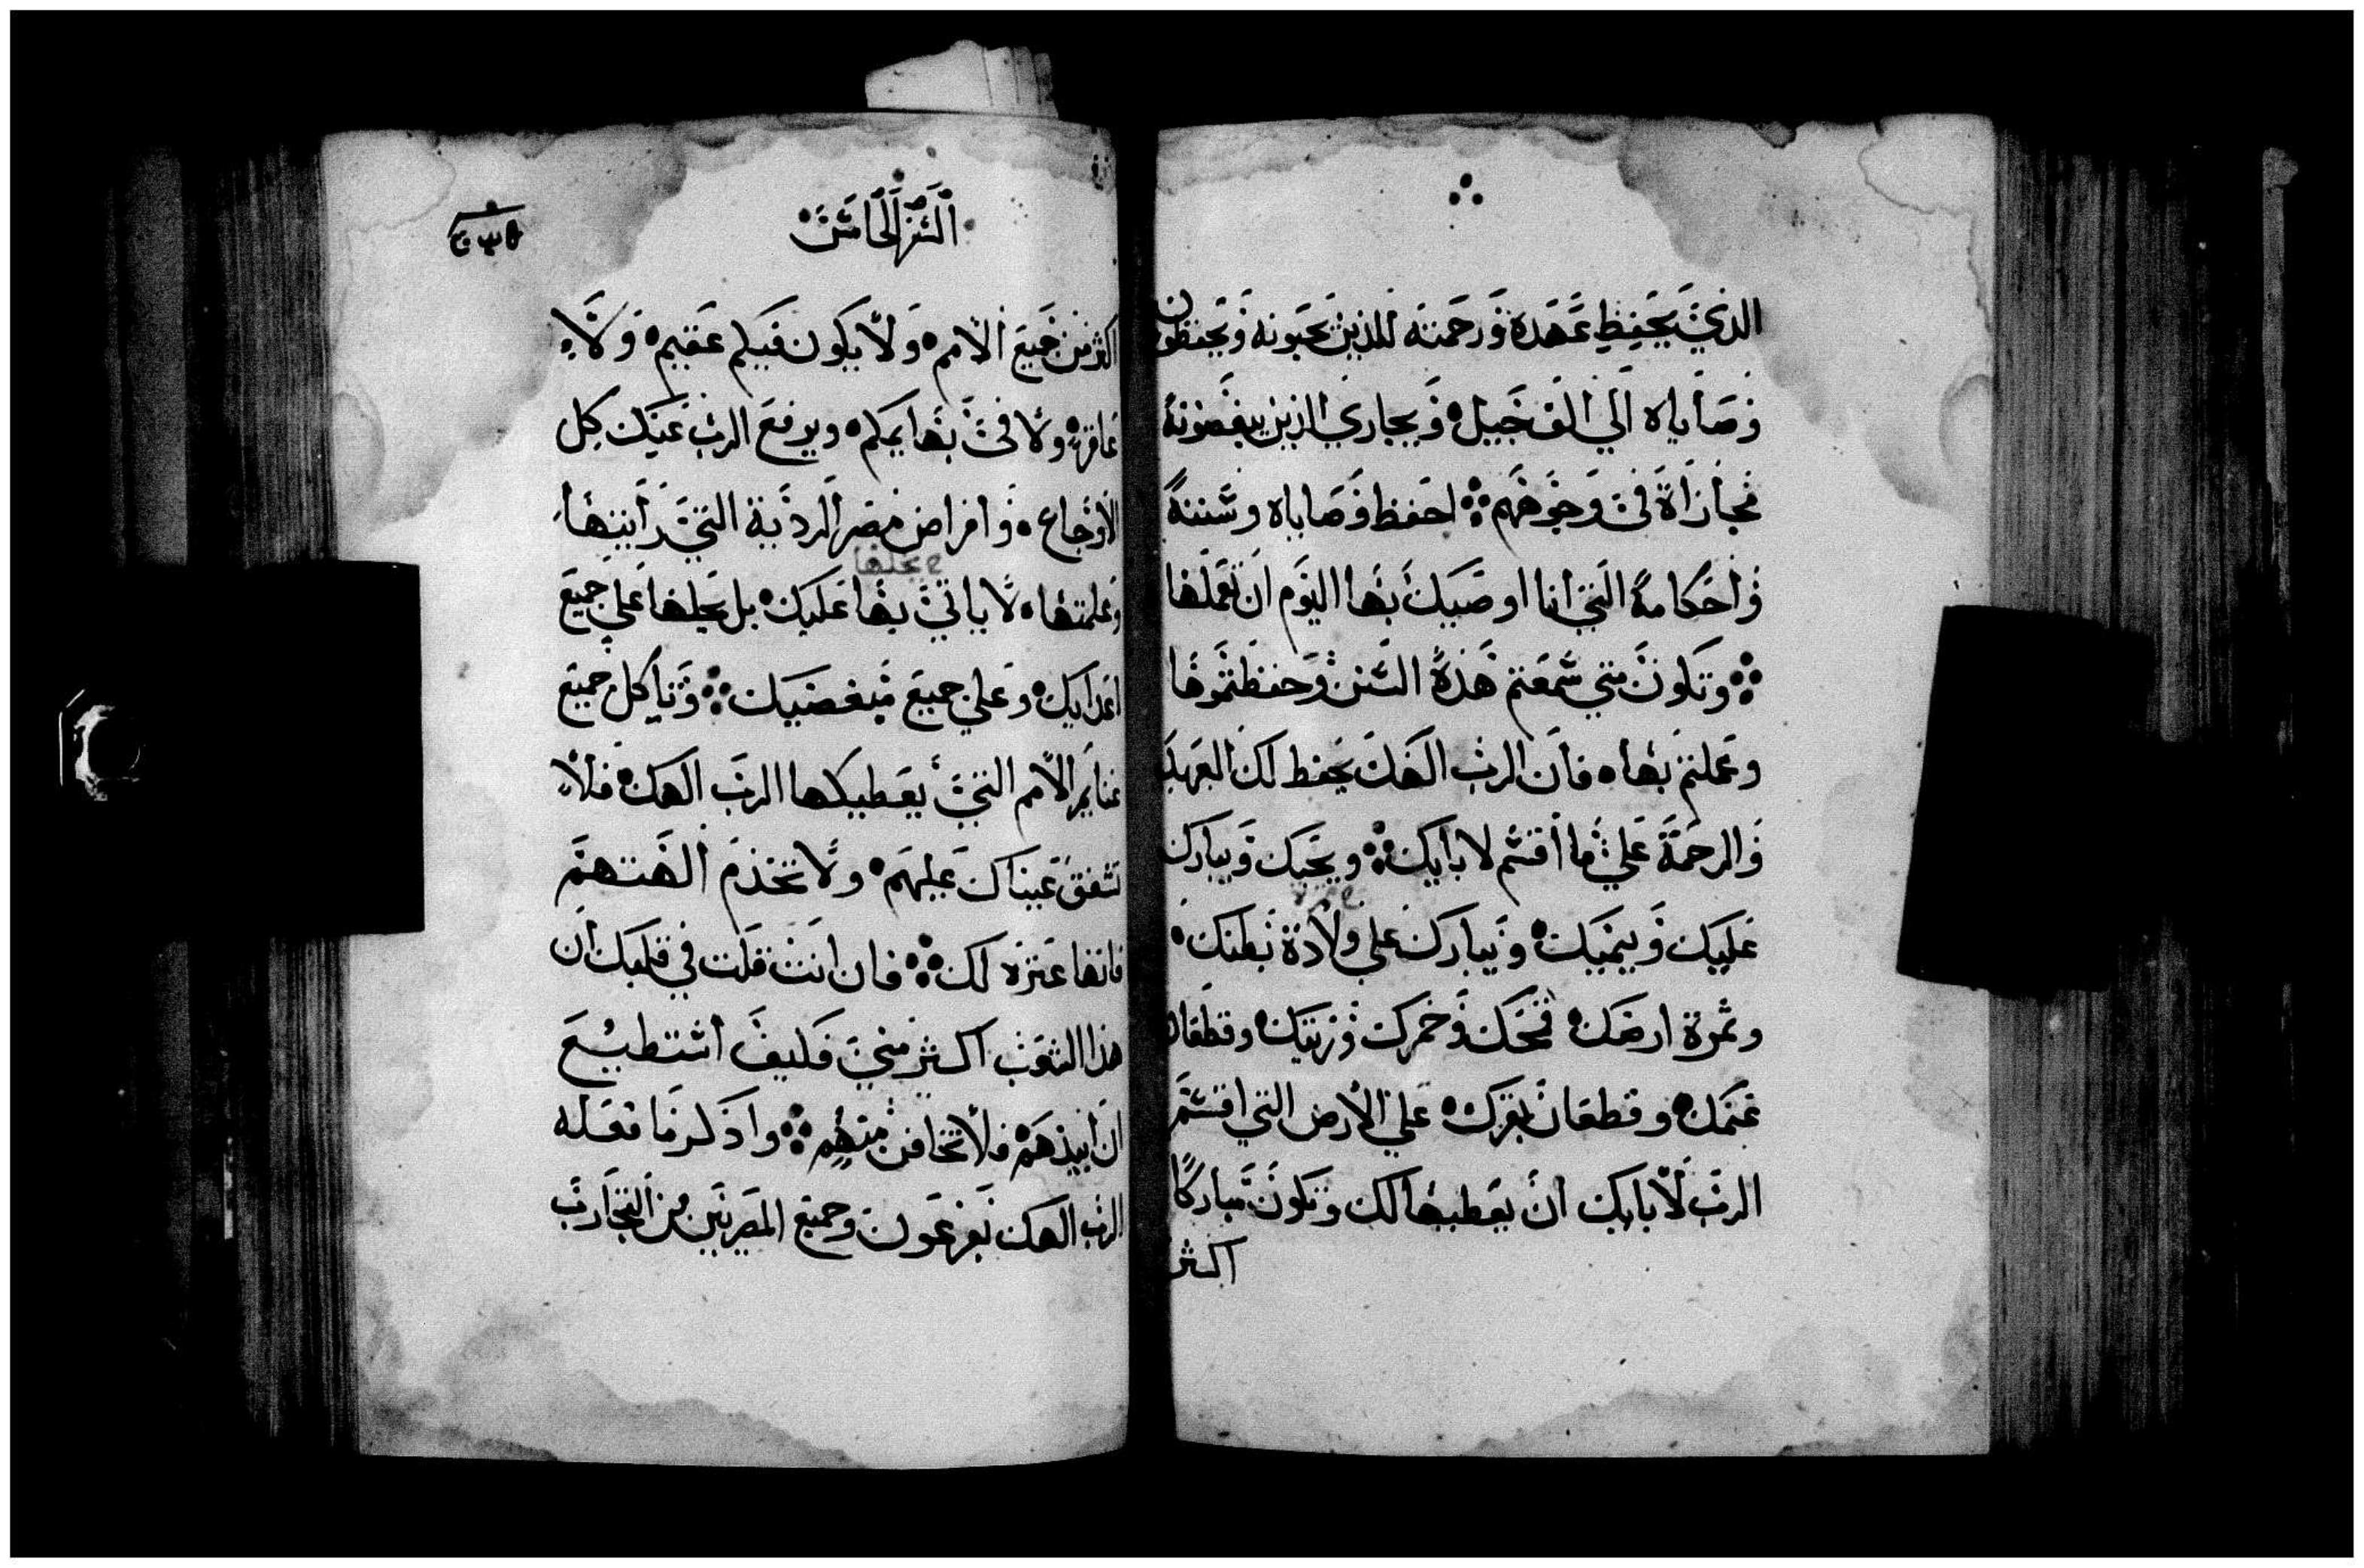 الذي يحفظ عهده ورحمته للذين يحبونه ويحفظون
وصاياه الي الف جيل ويجازي الذين يبغضونه
مجازاة في وجوههم احفظ وصاياه وسننه
واحكامه التي انا اوصيك بها اليوم ان تعملها
وتكون متي سمعتم هذه السنن وحفظتموها
وعملتم بها فان الرب الهك يحفظ لك العهد
والرحمة علي ما اقسم لابايك ويحبك ويبارك
عليك وينميك ويبارك علي ولادة بطنك
وثمرة ارضك قمحك وخمرك وزيتك وقطعان
غنمك وقطعان بقرك علي الارض التي اقسم
الرب لابايك ان يعطيها لك وتكون مباركا
اكثر
السفر الخامس
اكثر من جميع الامم ولا يكون فيكم عقيم ولا
عاقره ولا في بهايمكم ويرفع الرب عنك كل
الاوجاع وامراض مصر الردية التي رايتها
يجلبها
وعلمتها لا ياتي بها عليك بل يجلبها علي جميع
اعدايك وعلي جميع مبغضيك وتاكل جميع
غنايم الامم التي يعطيكها الرب الهك فلا
تشفق عيناك عليهم ولا تخدم الهتهم
فانها عثرة لك فان انت قلت في قلبك ان
هذا الشعب اكثر مني فكيف استطيع
ان ابيدهم فلا تخافن منهم واذكر ما فعله
الرب الهك بفرعون وجميع المصريين من التجارب